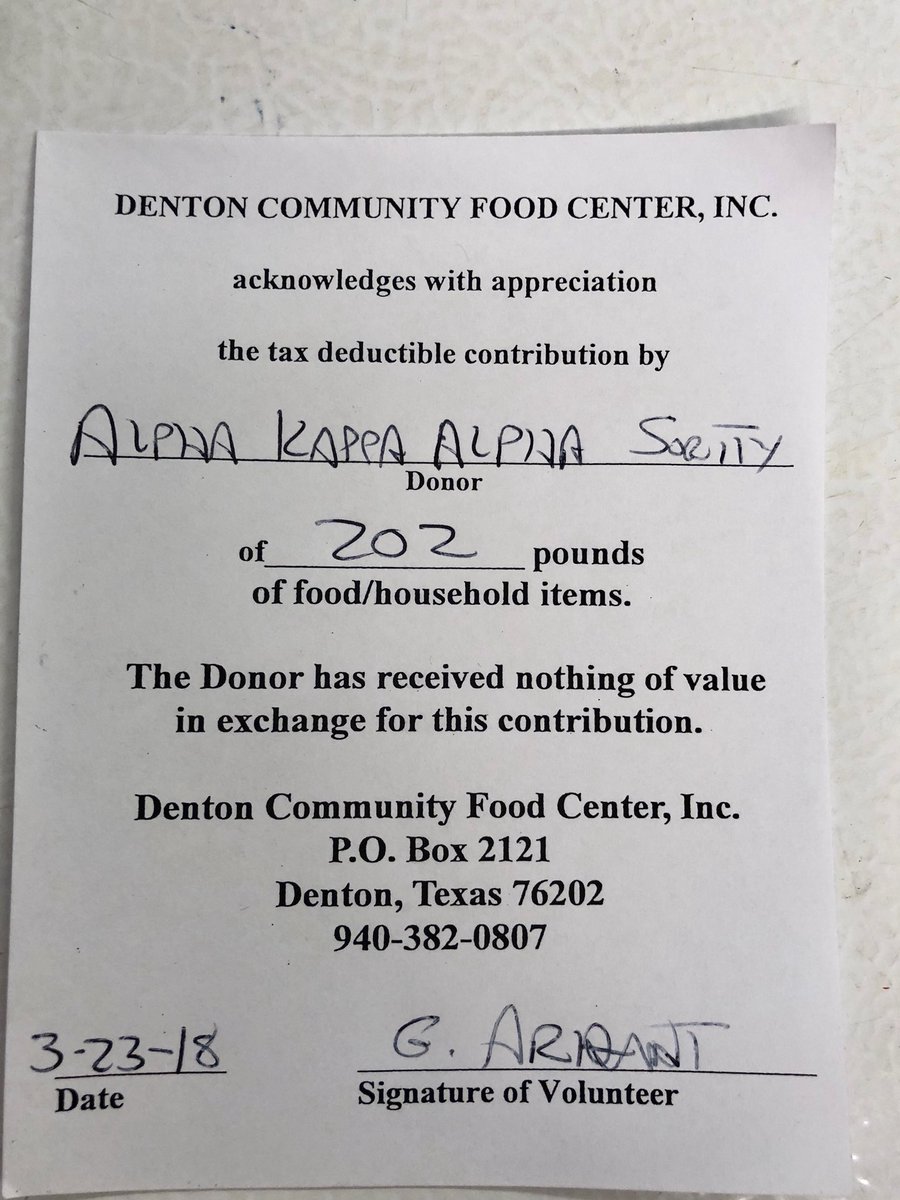 DENTON COMMUNITY FOOD CENTER, INC.
acknowledges with appreciation
the tax deductible contribution by
ALPHA KAPPA ALPHA SORITY
Donor
of 202 pounds
of food/household items.
The Donor has received nothing of value
in exchange for this contribution.
Denton Community Food Center, Inc.
P.O. Box 2121
Denton, Texas 76202
940-382-0807
3-23-18 G.
Date Signature of Volunteer